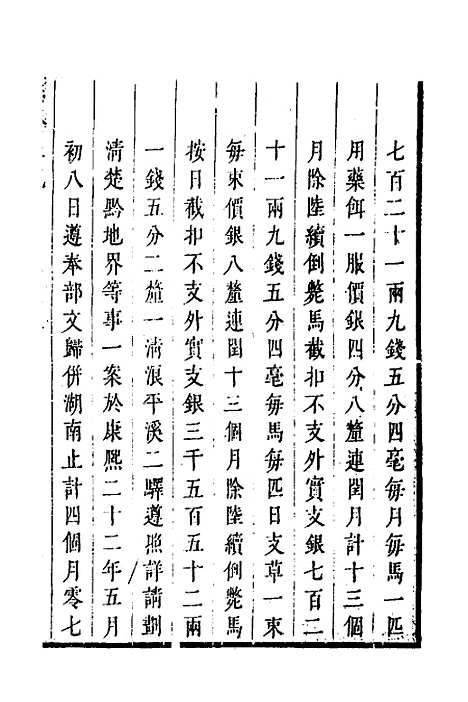 七百二十一兩九錢五分四毫每月每馬一匹
用藥餌一服價銀四分八釐連閏月計十三個
月除陸續倒斃馬截扣不支外實支銀七百二
十一兩九錢五分四毫每馬每匹日支草一束
每束價銀八釐連閏十三個月除陸續倒斃馬
按日截扣不支外實支銀三千五百五十二兩
一錢五分二釐一清浪平溪二驛遵照詳請劃
清楚黔地界等事一案於康熙二十二年五月
初八日遵奉部文歸併湖南止計四個月零七